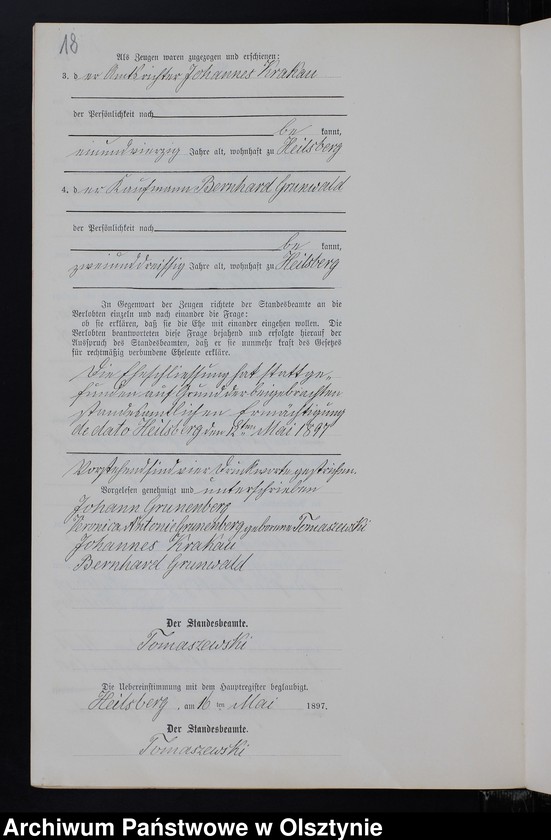 18
Als Zeugen waren zugezogen und erschienen:
3. der Amtsrichter Johannes Krakau
der Persönlichkeit nach
be kannt,
einundvierzig Jahre alt, wohnhaft zu Heilsberg
4. der Kaufmann Bernhard Grunwald
der Persönlichkeit nach
be kannt,
zweiunddreissig Jahre alt, wohnhaft zu Heilsberg
In Gegenwart der Zeugen richtete der Standesbeamte an die
Verlobten einzeln und nach einander die Frage:
ob sie erklären, daß sie die Ehe mit einander eingehen wollen. Die
Verlobten beantworteten diese Frage bejahend und erfolgte hierauf der
Ausspruch des Standesbeamten, daß er sie nunmehr kraft des Gesetzes
für rechtmäßig verbundene Eheleute erkläre.
Die Eheschliessung hat stattge-
funden auf Grund der beigebrachten
standesamtlichen Ermächtigung
de dato Heilsberg den 12ten Mai 1897
Vorstehend sind vier Druckworte gestrichen.
Vorgelesen genehmigt und unterschrieben
Johann Grunenberg
Veronica Antonie Grunenberg geborene Tomaszewski
Johannes Krakau
Bernhard Grunwald
Der Standesbeamte.
Tomaszewski
Die Uebereinstimmung mit dem Hauptregister beglaubigt.
Heilsberg, am 16 ten Mai 1897.
Der Standesbeamte.
Tomaszewski
Archiwum Państwowe w Olsztynie